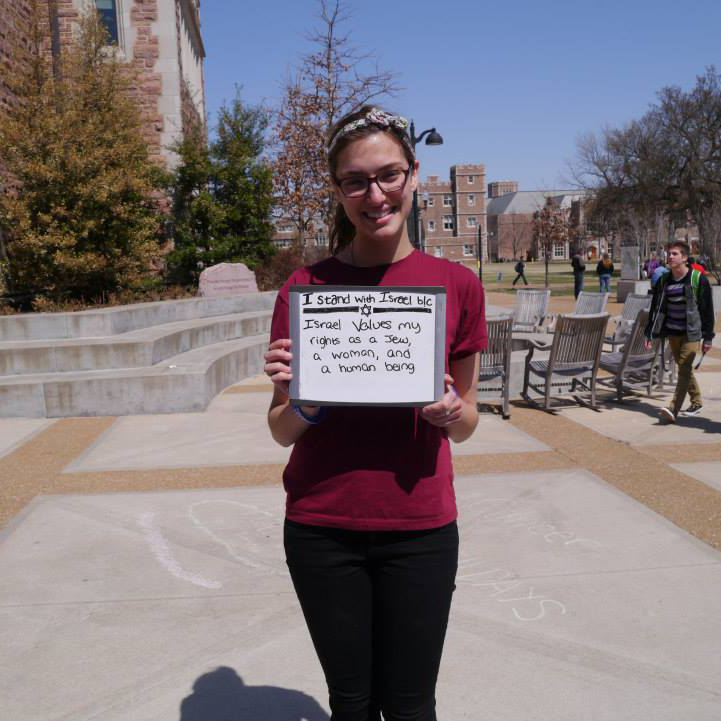 I stand with Israel b/c
Israel Values my
rights as a Jew,
a woman, and
a human being
DAYS